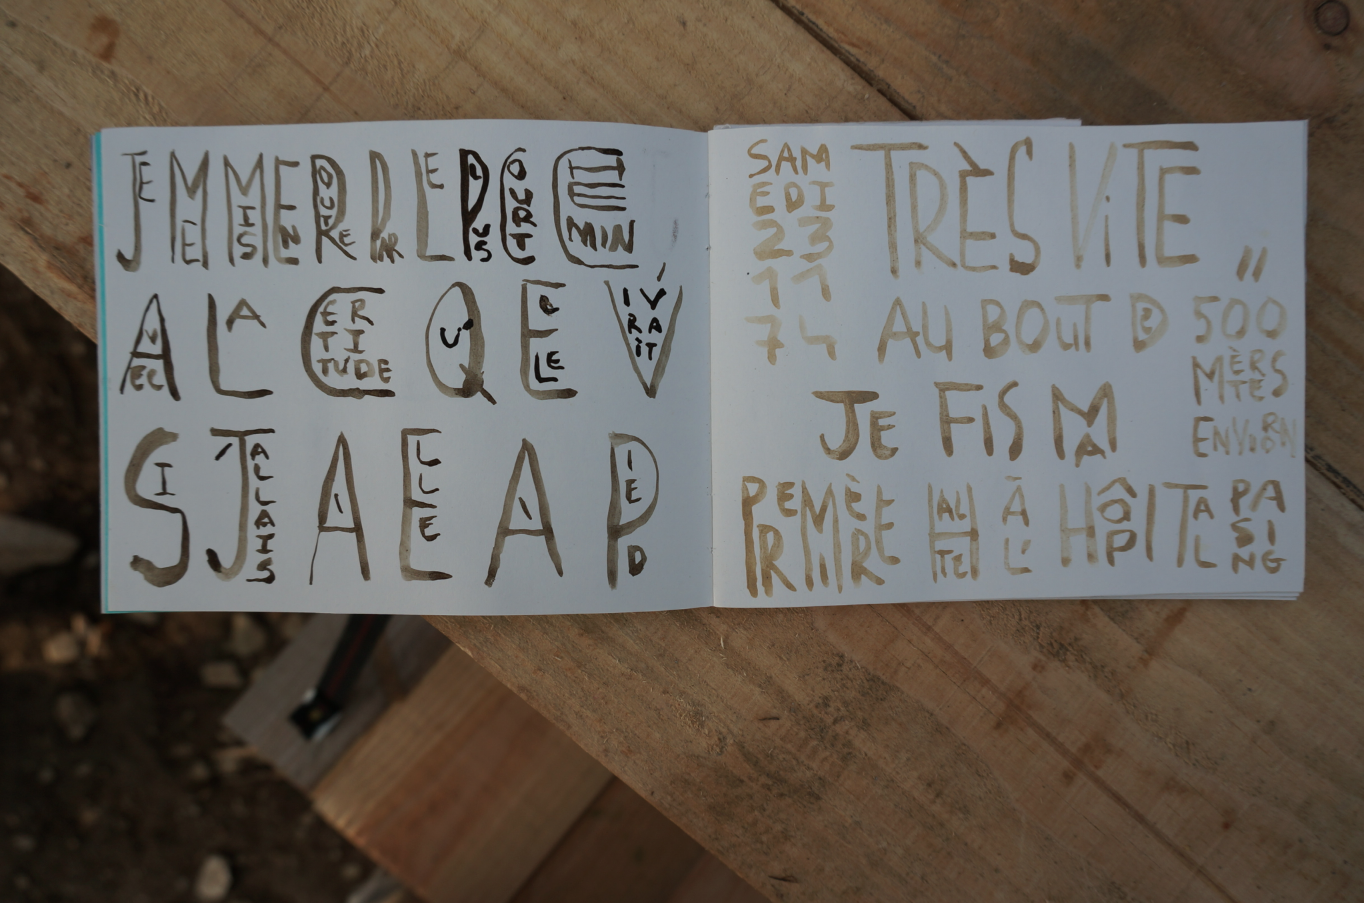 JE ME MIS EN ROUTE PAR LE PLUS COURT CHEMIN
AVEC LA CERTITUDE QU'ELLE VIVRAIT
SI J'ALLAIS À ELLE À PIED
SAM
EDI
23
11
74
TRÈS VITE,,
AU BOUT DE 500
MÈTRES
ENVIRON
JE FIS MA
PREMIÈRE HALTE À L'HÔPITAL PASING